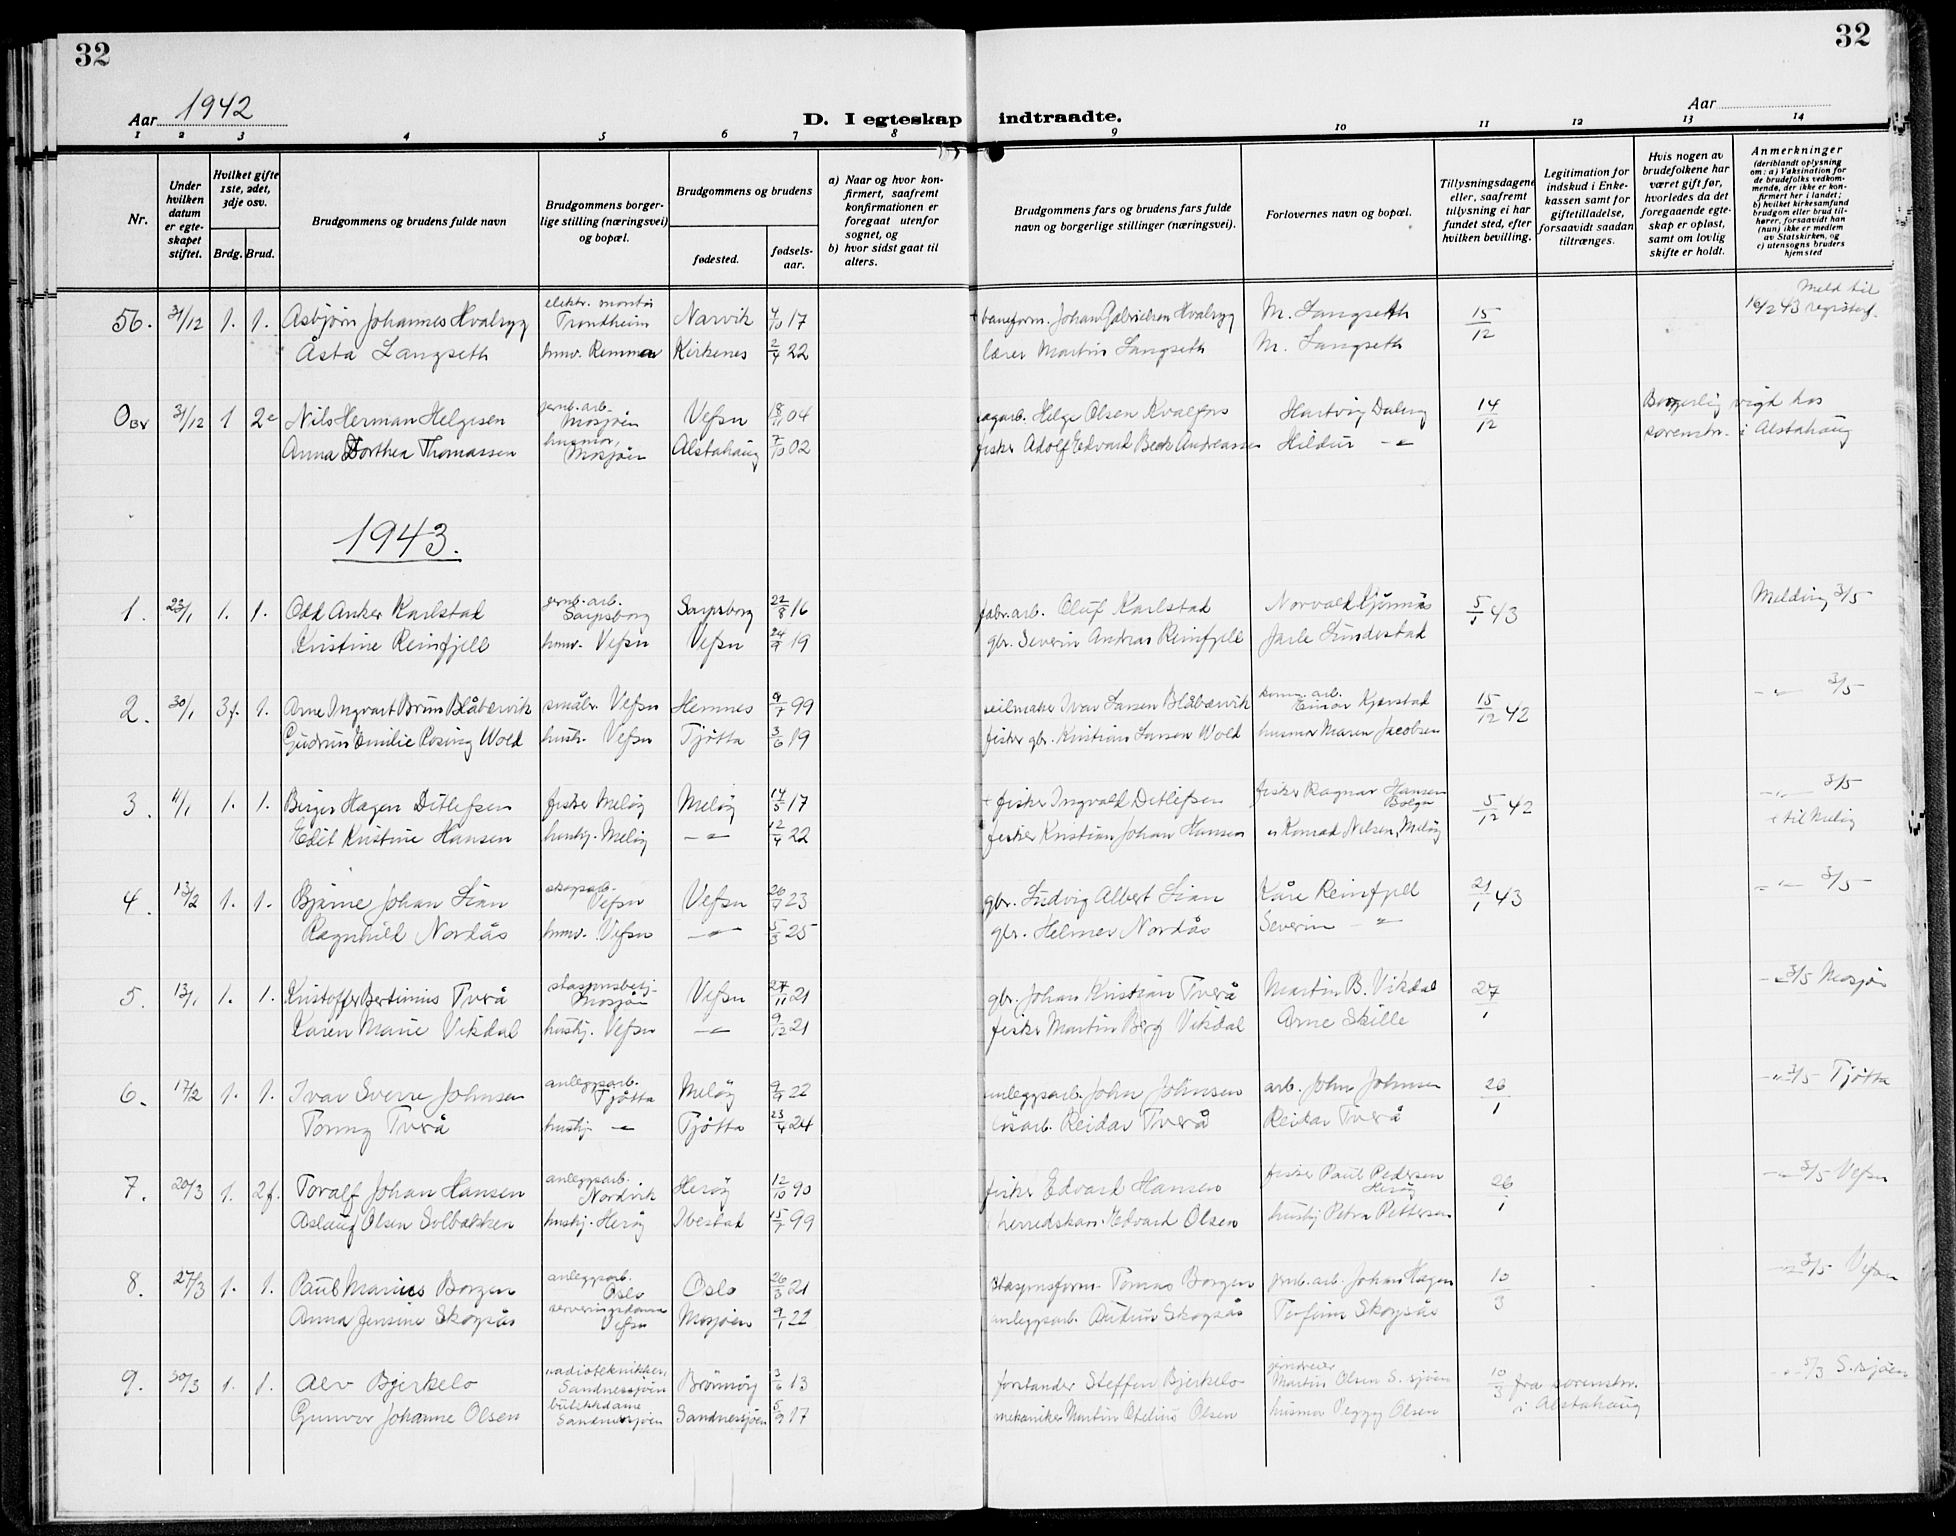 32
32
Aar 1942
D. I egteskap indtraadte.
Aar
1 2 3 4 5 6 7 8 9 10 11 12 13 14
Nr.
Under hvilken datum er egteskapet stiftet.
Hvilket gifte 1ste, 2det, 3dje osv.
Brdg. Brud.
Brudgommens og brudens fulde navn
Brudgommens borgerlige stilling (næringsvei) og bopæl.
Brudgommens og brudens
fødested.
fødselsaar.
a) Naar og hvor konfirmert, saafremt konfirmationen er foregaat utenfor sognet, og
b) hvor sidst gaat til alters.
Brudgommens fars og brudens fars fulde navn og borgerlige stillinger (næringsvei).
Forlovernes navn og bopæl.
Tillysningsdagene eller, saafremt tillysning ei har fundet sted, efter hvilken bevilling.
Legitimation for indskud i Enkekassen samt for giftetilladelse, forsaavidt saadan tiltrænges.
Hvis nogen av brudefolkene har været gift før, hvorledes da det foregaaende egteskap er opløst, samt om lovlig skifte er holdt.
Anmerkninger (deriblandt oplysning om: a) Vaksination for de brudefolks vedkommende, der ikke er konfirmert her i landet; b) hvilket kirkesamfund brudgom eller brud tilhører, forsaavidt han (hun) ikke er medlem av Statskirken, og c) utensogns bruders hjemsted
56. 31/12 1. 1. Asbjørn Johannes Hvalryg elektr. montør Trondheim Narvik 4/10 17 + baneform. Johan Gabrielsen Hvalryg M. Langseth 15/12 Meld til 16/2 43 registerf.
Åsta Langseth hmv. Remma Kirkenes 2/4 22 lærer Martin Langseth M. Langseth
Obv 31/12 1 2e Nils Herman Helgesen jernb.arb. Mosjøen Vefsn 18/11 04 sagarb. Helge Olsen Kvalfors Hartvig Dalseg 14/12 Borgerlig vigd hos
Anna Dorthea Thomassen husmor, Mosjøen Alstahaug 7/10 02 fisker Adolf Edvard Beck Andreassen Hildur -"- sorenskr. i Alstahaug
1943.
1. 23/1 1. 1. Odd Anker Karlstad jernb.arb. Sarpsborg Sarpsborg 22/8 16 fabr.arb. Oluf Karlstad Norvald 5/1 43 Melding 3/5
Kristine Reinfjell hmv. Vefsn Vefsn 24/9 19 gbr. Severin Andreas Reinfjell Jarle Lundestad
2. 30/1 3f. 1. Arne Ingvart Bruun Blåbærvik småbr. Vefsn Hemnes 9/7 99 seilmaker Ivar Larsen Blåbærvik Einar Kjærstad 15/12 42 -"- 3/5
Gudrun Emilie Rosing Wold hush. Vefsn Tjøtta 3/6 19 fisker gbr. Kristian Larsen Wold husmor Maren Jacobsen
3. 4/1 1. 1. Birger Hagen Ditlefsen fisker Meløy Meløy 14/5 17 + fisker Ingvald Ditlefsen fisker Ragnar Hansen Bolga 5/12 42 -"- 3/5
Edit Kristine Hansen hushj. Meløy -"- 12/4 22 fisker Kristian Johan Hansen " Konrad Nilsen, Meløy til Meløy
4. 13/2 1. 1. Bjarne Johan Lian skogsarb. Vefsn Vefsn 26/7 23 gbr. Ludvig Albert Lian Kåre Reinfjell 21/1 43 -"- 3/5
Ragnhild Nordås hmv. Vefsn -"- 5/3 25 gbr. Helmer Nordås Severin -"-
5. 13/1 1. 1. Kristoffer Bertinius Tverå stasjonsbetj. Mosjøen Vefsn 27/11 21 gbr. Johan Kristian Tverå Martin B. Vikdal 27/1 -"- 3/5 Mosjøen
Karen Marie Vikdal hushj. Vefsn -"- 9/12 21 fisker Martin Berg Vikdal Arne Skille
6. 17/2 1. 1. Ivar Sverre Johnsen anleggsarb. Tjøtta Meløy 9/9 22 anleggsarb. John Johnsen arb. John Johnsen 26/1 -"- 3/5 Tjøtta
Tonny Tverå hushj. -"- Tjøtta 23/4 24 løsarb. Reidar Tverå Reidar Tverå
7. 20/3 1. 2f. Toralf Johan Hansen anleggsarb. Nordvik Herøy 12/10 90 fisker Edvard Hansen fisker Paul Pedersen Herøy 26/1 -"- 3/5 Vefsn
Aslaug Olsen Solbakken hushj. Herøy Ibestad 15/7 99 herredskas. Edvard Olsen hushj Petra Pettersen
8. 27/3 1. 1. Paul Marius Borgen anleggsarb. Oslo Oslo 26/3 21 stasjonsform. Tomas Borgen jernb.arb. Johan Hagen 10/3 -"- 3/5 Vefsn
Anna Jensine Skogsås serveringsdame Vefsn Mosjøen 9/1 22 anleggsarb. Skogsås Torfinn Skogsås
9. 30/3 1. 1. Alv Bjerkelo radiotekniker, Sandnessjøen Brønnøy 3/6 13 forstander Steffen Bjerkelo Martin Olsen S.sjøen 10/3 fra sorenskr. -"- 5/3 S.sjøen
Gunvor Johanne Olsen butikkdame Sandnessjøen Sandnessjøen 5/9 17 mekaniker Martin Olsen husmor Peggy Olsen i Alstahaug